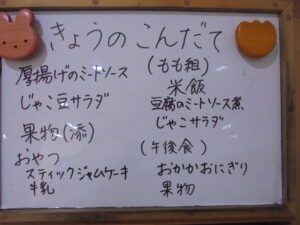 きょうのこんだて
厚揚げのミートソース
じゃこ豆サラダ
果物(添)
おやつ
スティックジャムケーキ
牛乳
(もも組)
米飯
豆腐のミートソース煮
じゃこサラダ
(午後食)
おかかおにぎり
果物